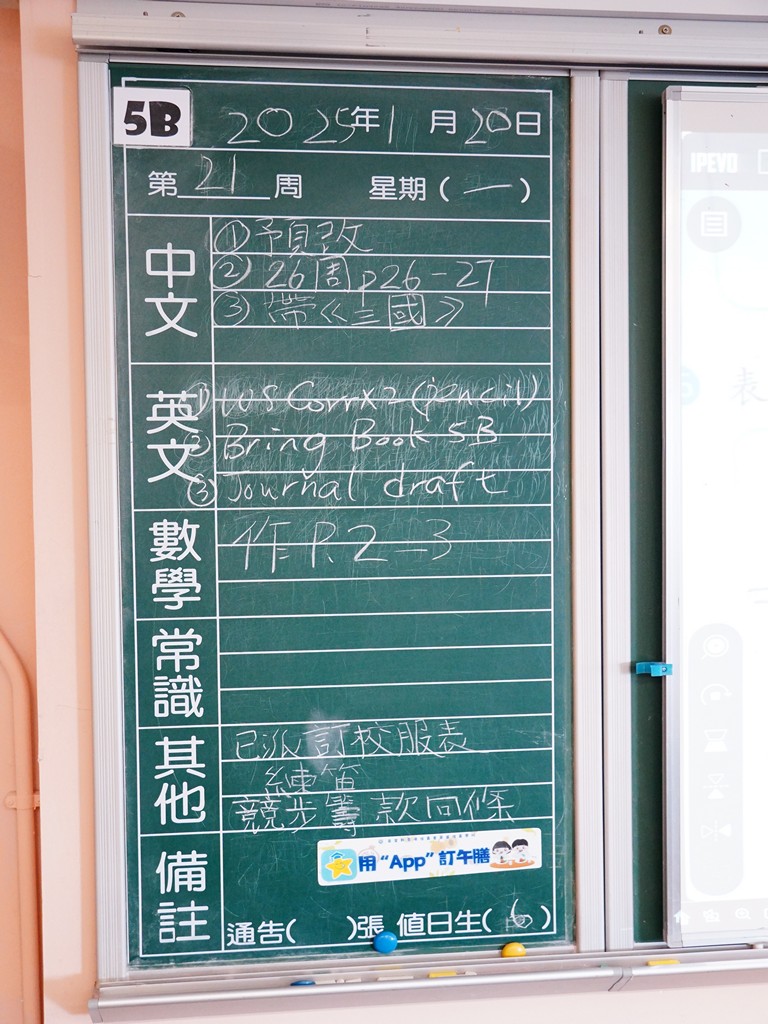 5B
2025年1月20日
第 21 周 星期(一)
中文
①預改
②26周p26-27
③帶《三國》
英文
① WS Corrx2 (pencil)
② Bring Book 5B
③ Journal draft
數學
作 P.2-3
常識
其他
已派訂校服表
練笛
競步籌款回條
備註
用“App”訂午膳
通告( )張 值日生(6)
IPEVO
表